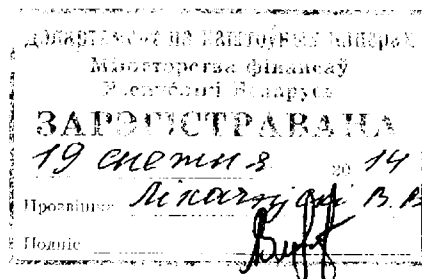 Дэпартамент па каштоўных паперах
Міністэрства фінансаў
Рэспублікі Беларусь
ЗАРЭГІСТРАВАНА
19 снежня 20 14
Прозвішча В.В.
Подпіс